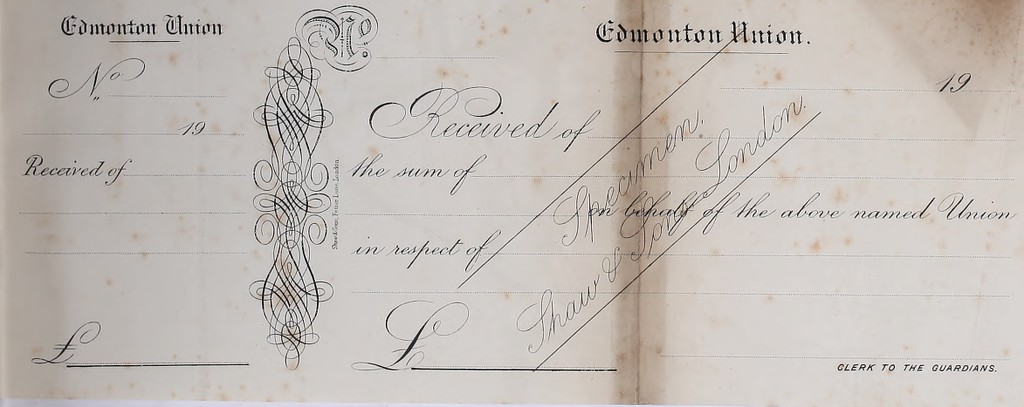 Edmonton Union
No
19
Received of
£
Shaw & Sons, Fetter Lane, London.
No.
Edmonton Union.
19
Received of
the sum of
on behalf of the above named Union
in respect of
£
CLERK TO THE GUARDIANS.
Specimen.
Shaw & Sons London.